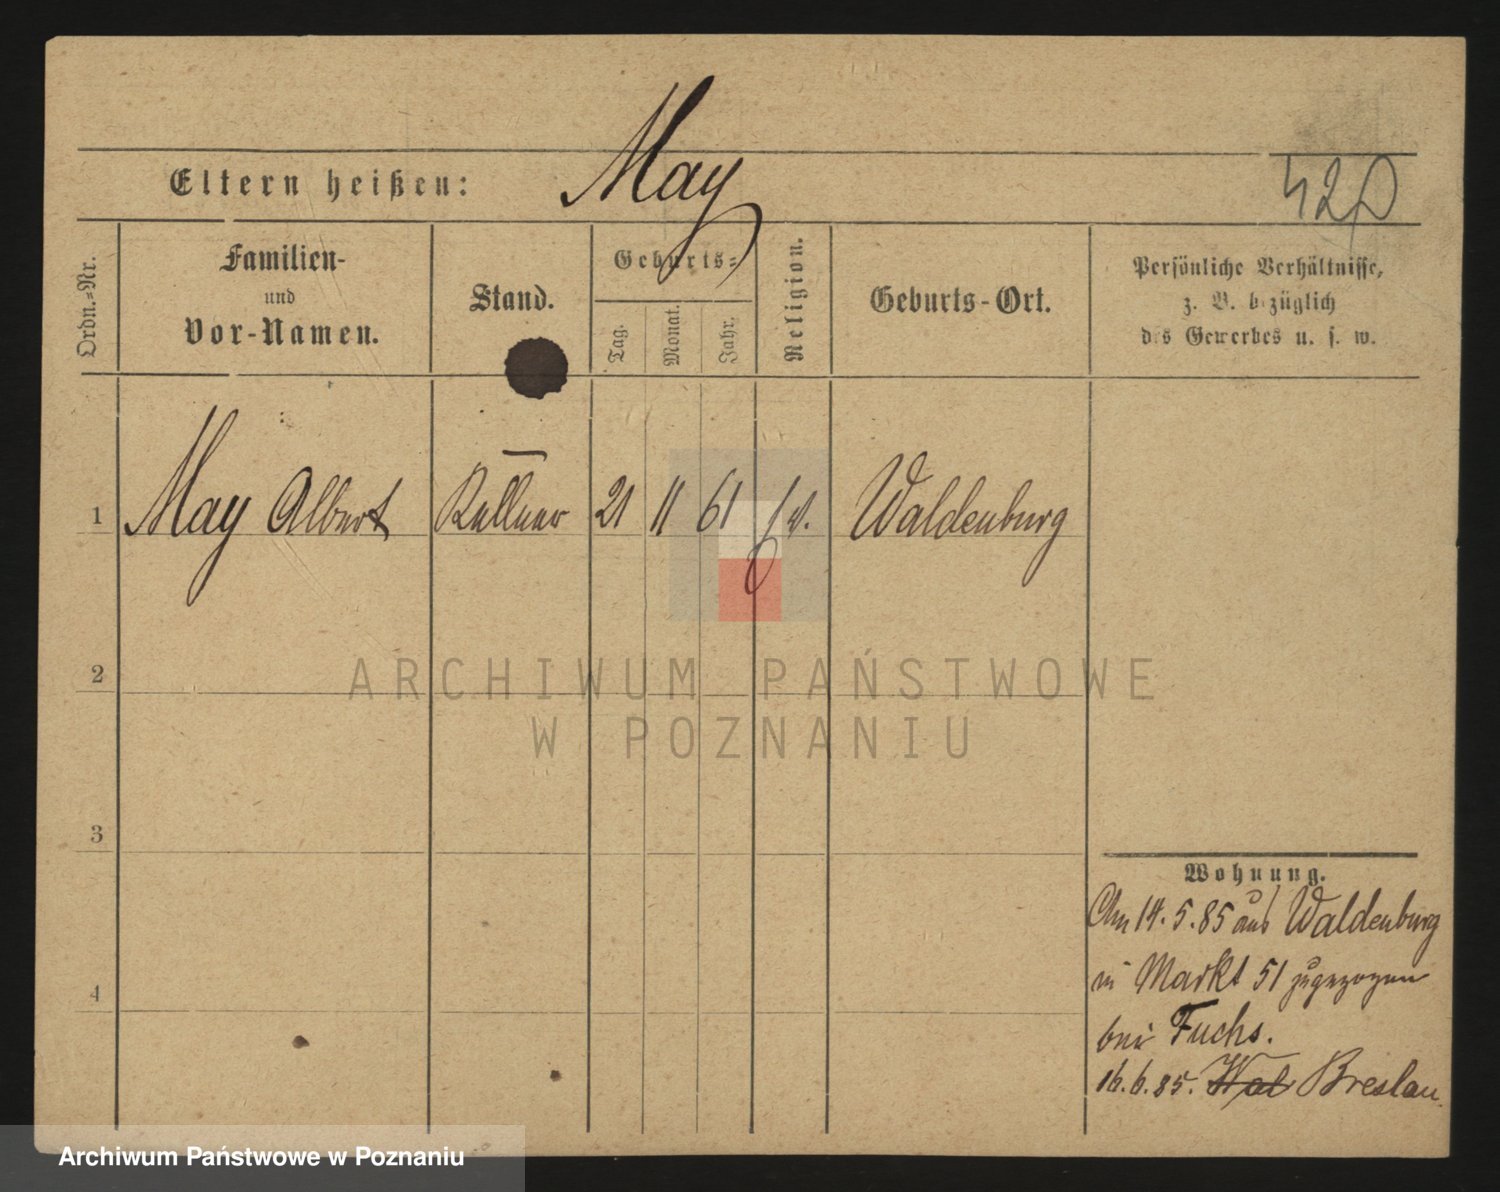 May
Eltern heißen:
Ordn.-Nr.
Familien-
und
Vor-Namen.
Stand.
Geburts-
Tag.
Monat.
Jahr.
Religion.
Geburts-Ort.
Persönliche Verhältnisse,
z. B. bezüglich
des Gewerbes u. s. w.
1 May Albert Kellner 21 11 61 Waldenburg
2
3
4
Wohnung.
Am 14.5.85 aus Waldenburg
in Markt 51 zugezogen
bei Fuchs.
16.6.85. Wal Breslau.
ARCHIWUM PAŃSTWOWE
W POZNANIU
Archiwum Państwowe w Poznaniu